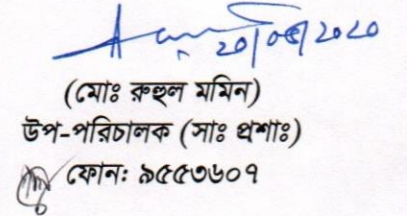 ২০/০৫/২০২০
(মোঃ রুহুল মমিন)
উপ-পরিচালক (সাঃ প্রশাঃ)
ফোন: ৯৫৫৩৬০৭